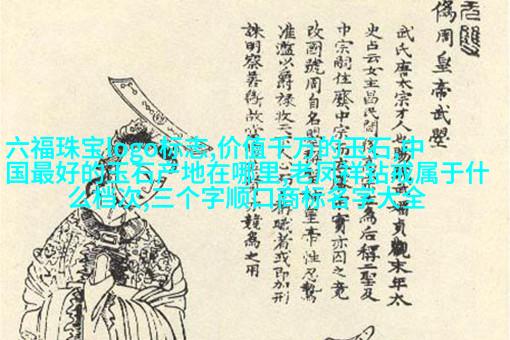 偽周皇帝武曌
武氏唐太宗才人也 貞觀末年太
史占云女主昌民間 為后稱二聖及
中宗嗣位廢中宗而立 實亦囚之竟
改國號周自名曌 皇帝性忍鷙
濫以爵祿收 職者或即加刑
誅明察善斷故 競為之用
六福珠宝logo标志,价值千万的玉石,中
国最好的玉石产地在哪里,老凤祥钻戒属于什
么档次,三个字顺口商标名字大全